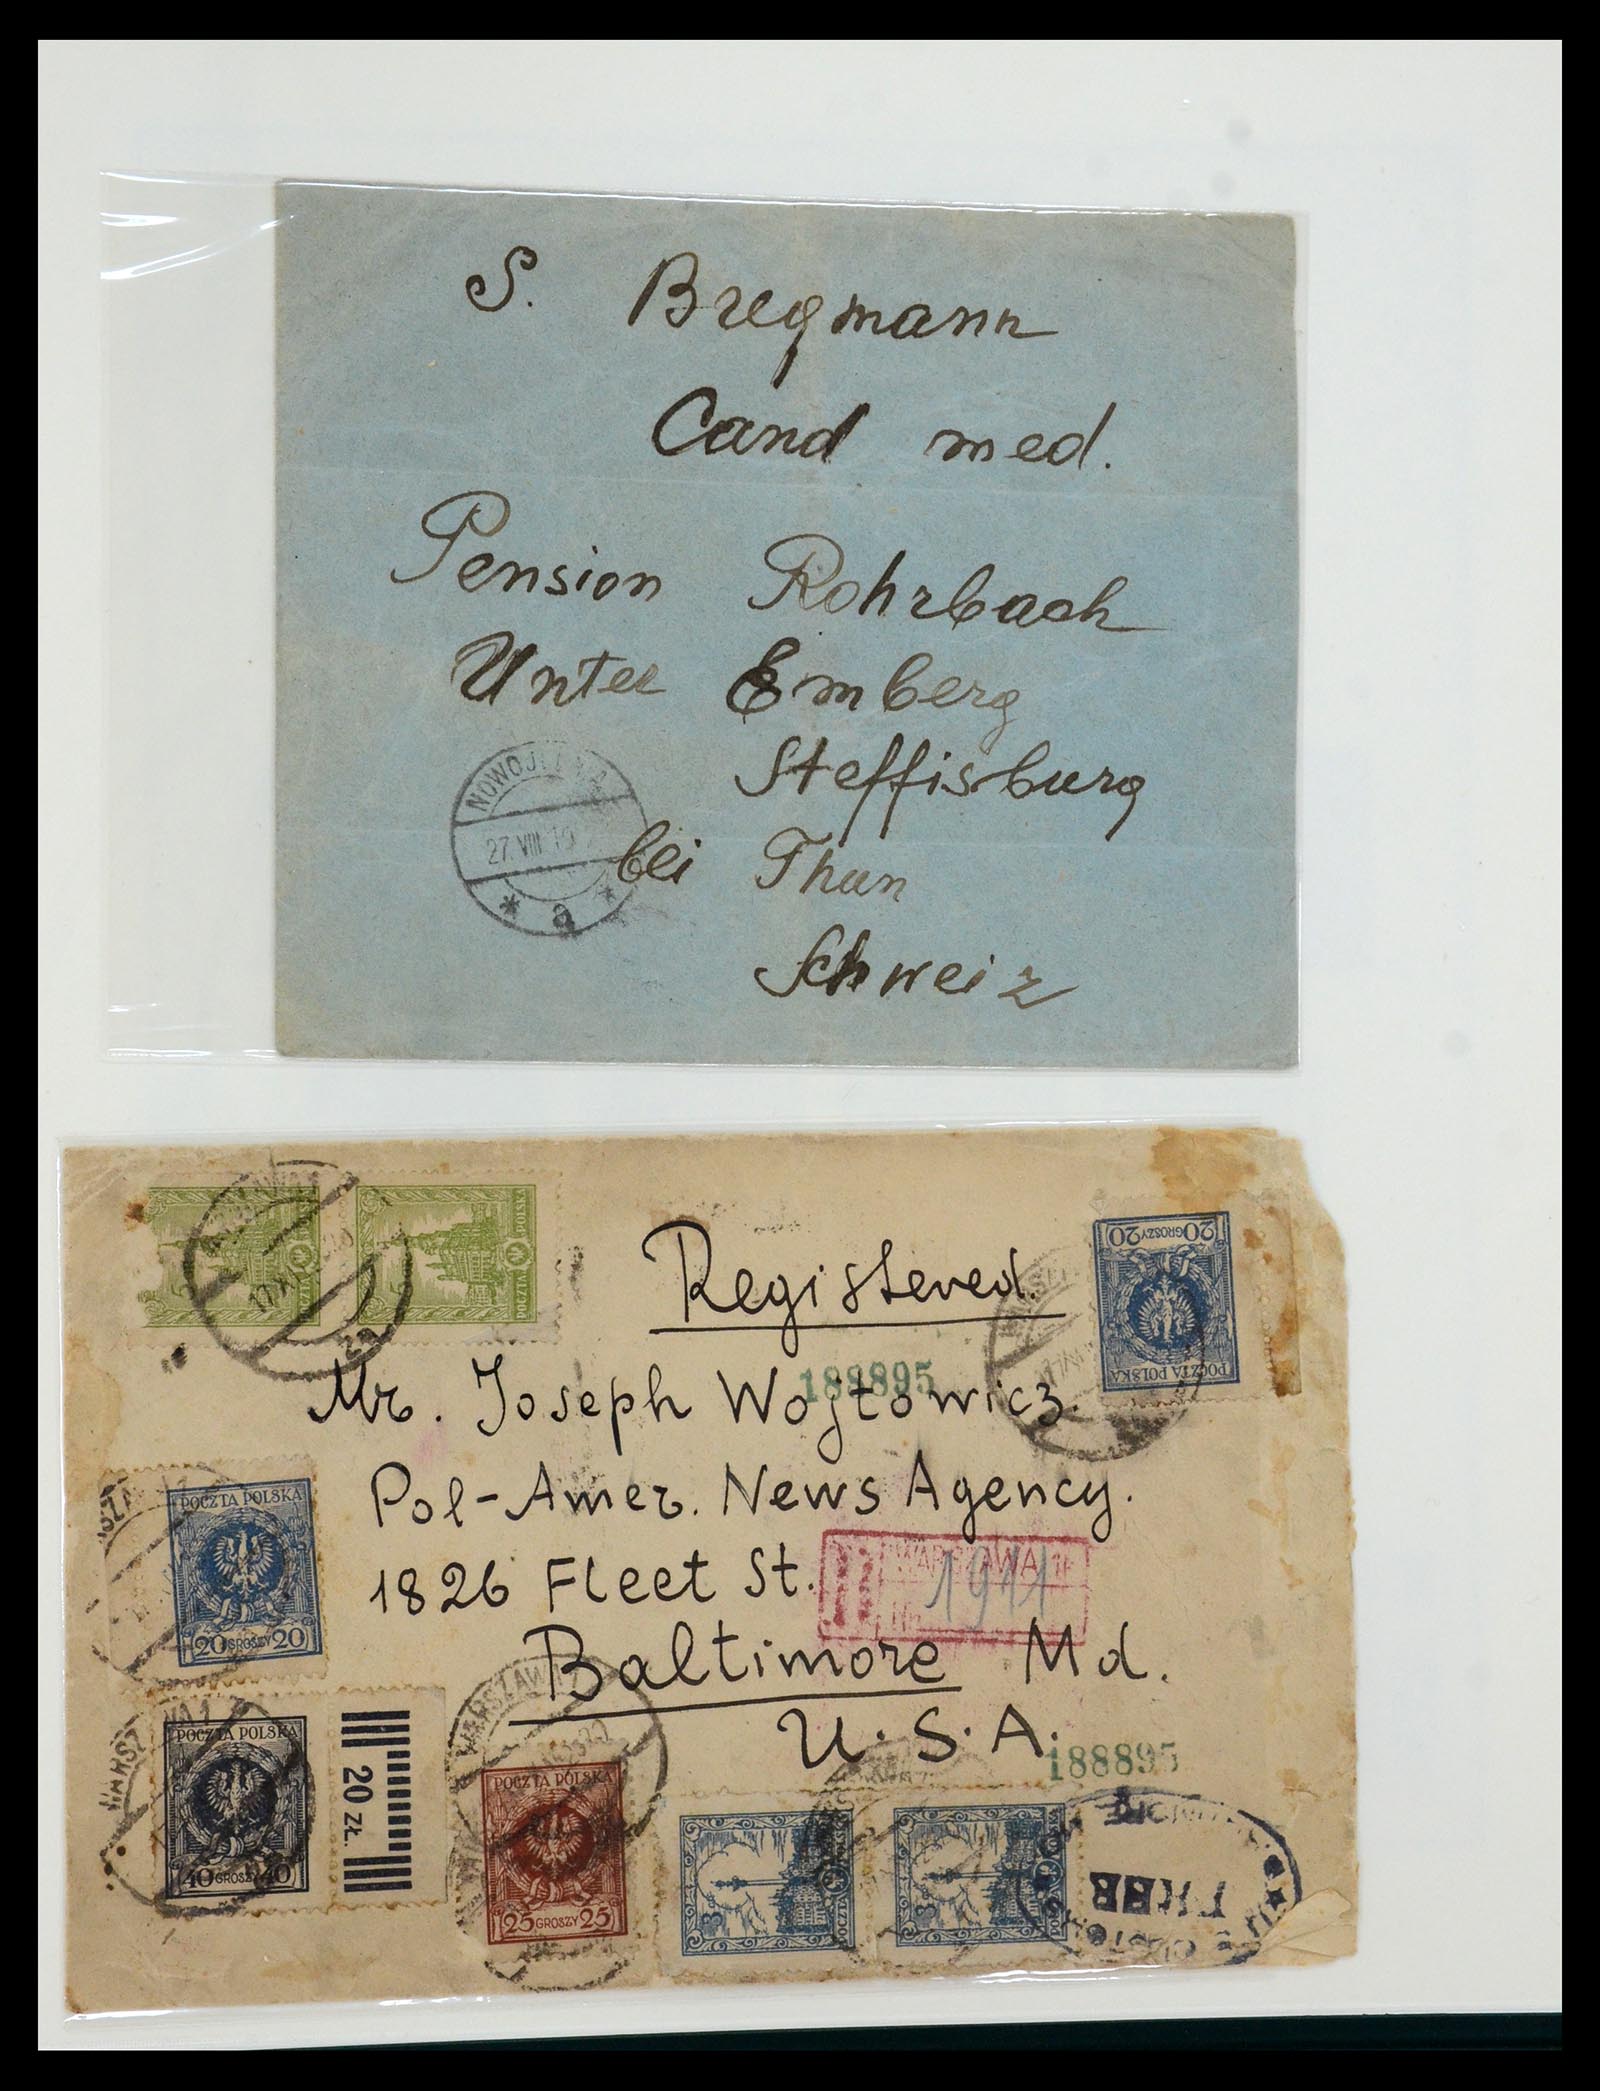 S. Bregmann
Cand med.
Pension Rohrbach
Unter Emberg
Steffisburg
bei Thun
Schweiz
27.VIII.19
a
POCZTA POLSKA
POCZTA POLSKA
20 GROSZY 20
POCZTA POLSKA
Registered.
188895
Mr. Joseph Wojtowicz.
Pol-Amer. News Agency.
1826 Fleet St.
WARSZAWA 1
1911
Baltimore Md.
U.S.A.
188895
POCZTA POLSKA
20 GROSZY 20
POCZTA POLSKA
40 GROSZY 40
20 ZŁ.
WARSZAWA
POCZTA POLSKA
25 GROSZY 25
3
3